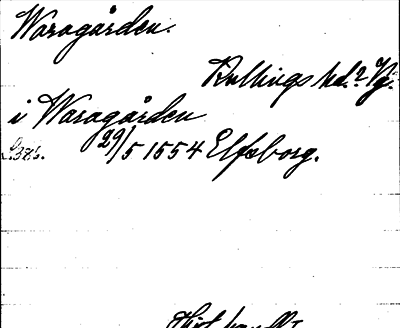 Waragården.
Kullings hd.? Vg.
i Waragården
29/5 1554 Elfsborg.